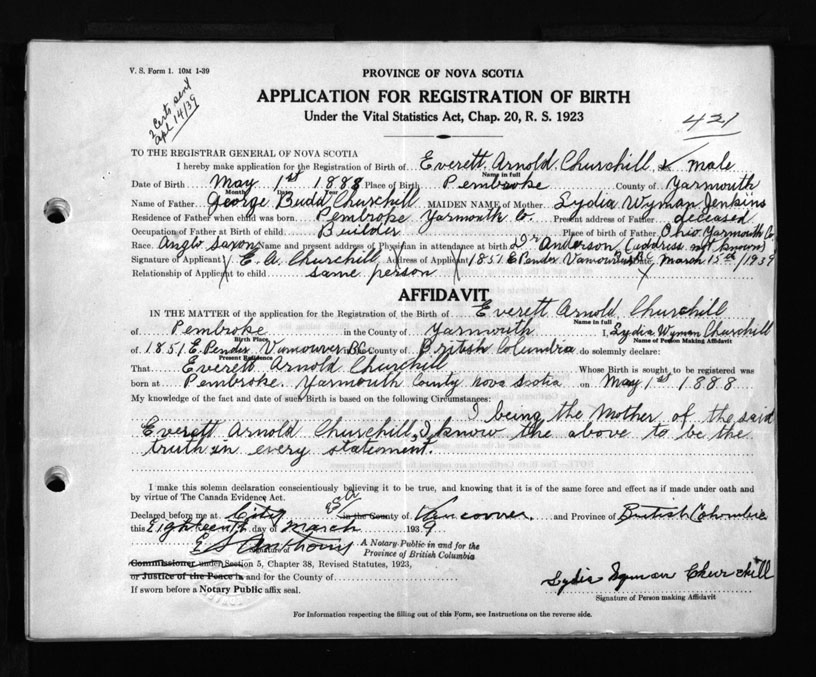 V. S. Form 1. 10M 1-39
2 Certs sent
Apl 14/39
PROVINCE OF NOVA SCOTIA
APPLICATION FOR REGISTRATION OF BIRTH
Under the Vital Statistics Act, Chap. 20, R. S. 1923
421
TO THE REGISTRAR GENERAL OF NOVA SCOTIA
I hereby make application for the Registration of Birth of Everett Arnold Churchill Sex Male
Name in full
Date of Birth May 1st 1888 Place of Birth Pembroke County of Yarmouth
Month Date Year
Name of Father George Budd Churchill MAIDEN NAME of Mother Lydia Wyman Jenkins
Residence of Father when child was born Pembroke Yarmouth Co. Present address of Father deceased
Occupation of Father at Birth of child Builder Place of birth of Father Ohio Yarmouth Co.
Race. Anglo Saxon Name and present address of Physician in attendance at birth Dr Anderson (address not known)
Signature of Applicant E. A. Churchill Address of Applicant 1851 E Pender Vancouver B.C. Date March 15th/1939
Relationship of Applicant to child same person
AFFIDAVIT
IN THE MATTER of the application for the Registration of the Birth of Everett Arnold Churchill
Name in full
of Pembroke in the County of Yarmouth I, Lydia Wyman Churchill
Birth Place Name of Person Making Affidavit
of 1851 E. Pender Vancouver B.C. in the County of British Columbia do solemnly declare:
Present Residence
That Everett Arnold Churchill Whose Birth is sought to be registered was
born at Pembroke Yarmouth County Nova Scotia on May 1st 1888
My knowledge of the fact and date of such Birth is based on the following Circumstances:
I being the Mother of the said
Everett Arnold Churchill, I know the above to be the
truth in every statement.
I make this solemn declaration conscientiously believing it to be true, and knowing that it is of the same force and effect as if made under oath and
by virtue of The Canada Evidence Act.
Declared before me at City in the County of Vancouver. and Province of British Columbia
this Eighteenth day of March 1939
Signature of
A Notary Public in and for the
Province of British Columbia
Commissioner under Section 5, Chapter 38, Revised Statutes, 1923,
or Justice of the Peace in and for the County of
If sworn before a Notary Public affix seal.
Lydia Wyman Churchill
Signature of Person making Affidavit
For Information respecting the filling out of this Form, see Instructions on the reverse side.